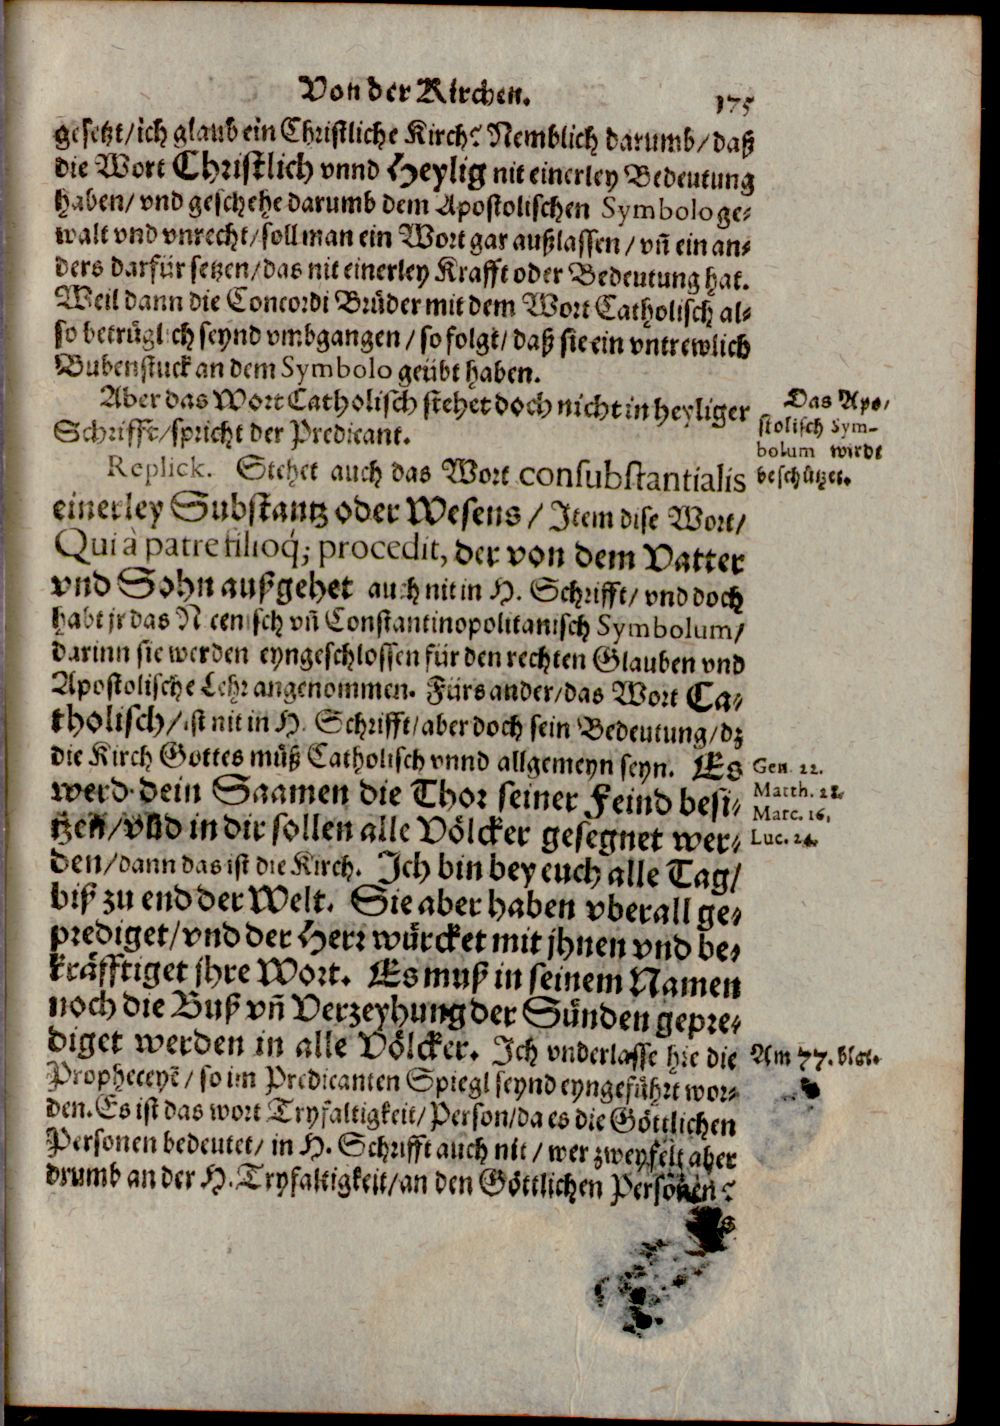 Von der Kirchen.
175
gesetzt/ich glaub ein Christliche Kirch? Nemblich darumb/daß
die Wort Christlich vnnd Heylig nit einerley Bedeutung
haben/ vnd geschehe darumb dem Apostolischen Symbolo ge-
walt vnd vnrecht/ soll man ein Wort gar außlassen/ vñ ein an-
ders darfür setzen/das nit einerley Krafft oder Bedeutung hat.
Weil dann die Concordi Brüder mit dem Wort Catholisch al-
so betrüglich seynd vmbgangen / so folgt/ daß sie ein vntrewlich
Bubenstuck an dem Symbolo geübt haben.
Aber das Wort Catholisch stehet doch nicht in heyliger
Schrifft/spricht der Predicant.
Das Apo-
stolisch Sym-
bolum wirdt
beschützet.
Replick. Stehet auch das Wort consubstantialis
einerley Substantz oder Wesens / Item dise Wort/
Qui à patre filioq́; procedit, der von dem Vatter
vnd Sohn außgehet auch nit in H. Schrifft/ vnd doch
habt jr das Nicenisch vñ Constantinopolitanisch Symbolum/
darinn sie werden eyngeschlossen für den rechten Glauben vnd
Apostolische Lehr angenommen. Fürs ander/das Wort Ca-
tholisch/ist nit in H. Schrifft/aber doch sein Bedeutung/dz
die Kirch Gottes müß Catholisch vnnd allgemeyn seyn. Es
Gen. 22.
werd dein Saamen die Thor seiner Feind besi-
Matth. 28.
Marc. 16.
tzen/vnd in dir sollen alle Völcker gesegnet wer-
Luc. 24.
den/dann das ist die Kirch. Ich bin bey euch alle Tag/
biß zu end der Welt. Sie aber haben vberall ge-
prediget/vnd der Herr würcket mit jhnen vnd be-
kräfftiget jhre Wort. Es muß in seinem Namen
noch die Buß vñ Verzeyhung der Sünden gepre-
diget werden in alle Völcker. Ich vnderlasse hie die
Am 77. blat.
Propheceyẽ / so im Predicanten Spiegl seynd eyngeführt wor-
den. Es ist das wort Tryfaltigkeit/ Person/da es die Göttlichen
Personen bedeutet/ in H. Schrifft auch nit / wer zweyfelt aber
drumb an der H. Tryfaltigkeit/an den Göttlichen Personen?